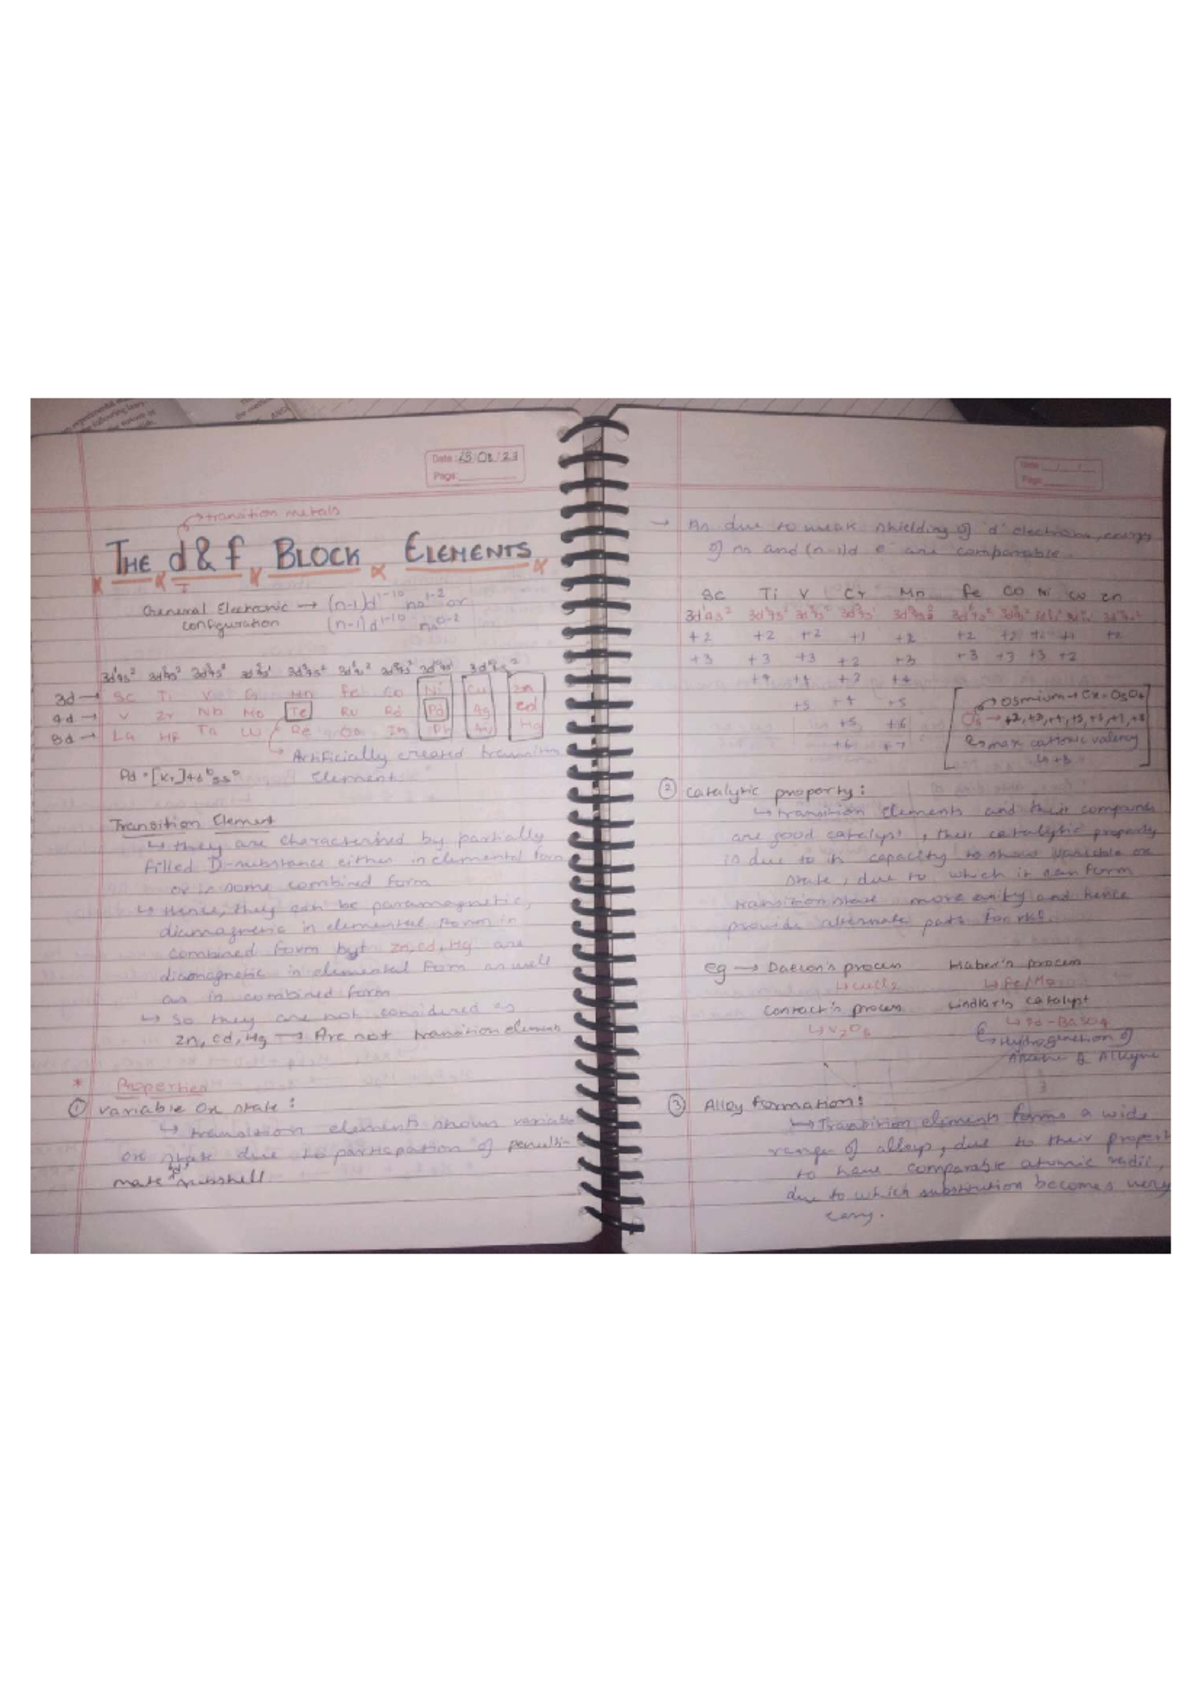 Date: 15/08/23
Page:
transition metals
THE d & f BLOCK ELEMENTS
General Electronic → (n-1)d1-10 ns1-2 or
configuration (n-1)d1-10 ns0-2
3d → Sc Ti V Cr Mn Fe Co Ni Cu Zn
4d → Y Zr Nb Mo Te Ru Rd Pd Ag Cd
5d → La Hf Ta W Re Os Pt Au Hg
↳ Artificially created transition
element
Pd = [Kr]
Transition Element
↳ they are characterised by partially
filled D-substance either in elemental form
or in some combined form
↳ Hence, they can be paramagnetic,
diamagnetic in elemental form in
combined form but Zn, Cd, Hg are
diamagnetic in elemental form as well
as in combined form
↳ So they are not considered as
Zn, Cd, Hg → Are not transition element
* Properties
① Variable Ox state :
↳ transition elements shows variable
ox state due to participation of penulti-
mate subshell
Date: / /
Page:
→ As due to weak shielding of 'd' electrons, energy
of ns and (n-1)d e⁻ are comparable.
Sc Ti V Cr Mn Fe Co Ni Cu Zn
+2 +2 +2 +1 +2 +2 +2 +2 +1 +2
+3 +3 +3 +2 +3 +3 +3 +3 +2
+4 +4 +3 +4
+5 +4 +5
+5 +6
+6 +7
Osmium
max cationic valency
② Catalytic property :
↳ transition elements and their compounds
are good catalyst, their catalytic property
is due to its capacity to show variable ox
state, due to which it can form
transition state more easily and hence
provide alternate path for rxn.
eg → Deacon's process Haber's process
↳ CuCl2 ↳ Fe/Mo
Contact's process Lindlar's catalyst
↳ V2O5 ↳ Pd-BaSO4
Hydrogenation of
Alkene & Alkyne
③ Alloy formation :
↳ Transition elements forms a wide
range of alloys, due to their property
to have comparable atomic radii,
due to which substitution becomes very
easy.